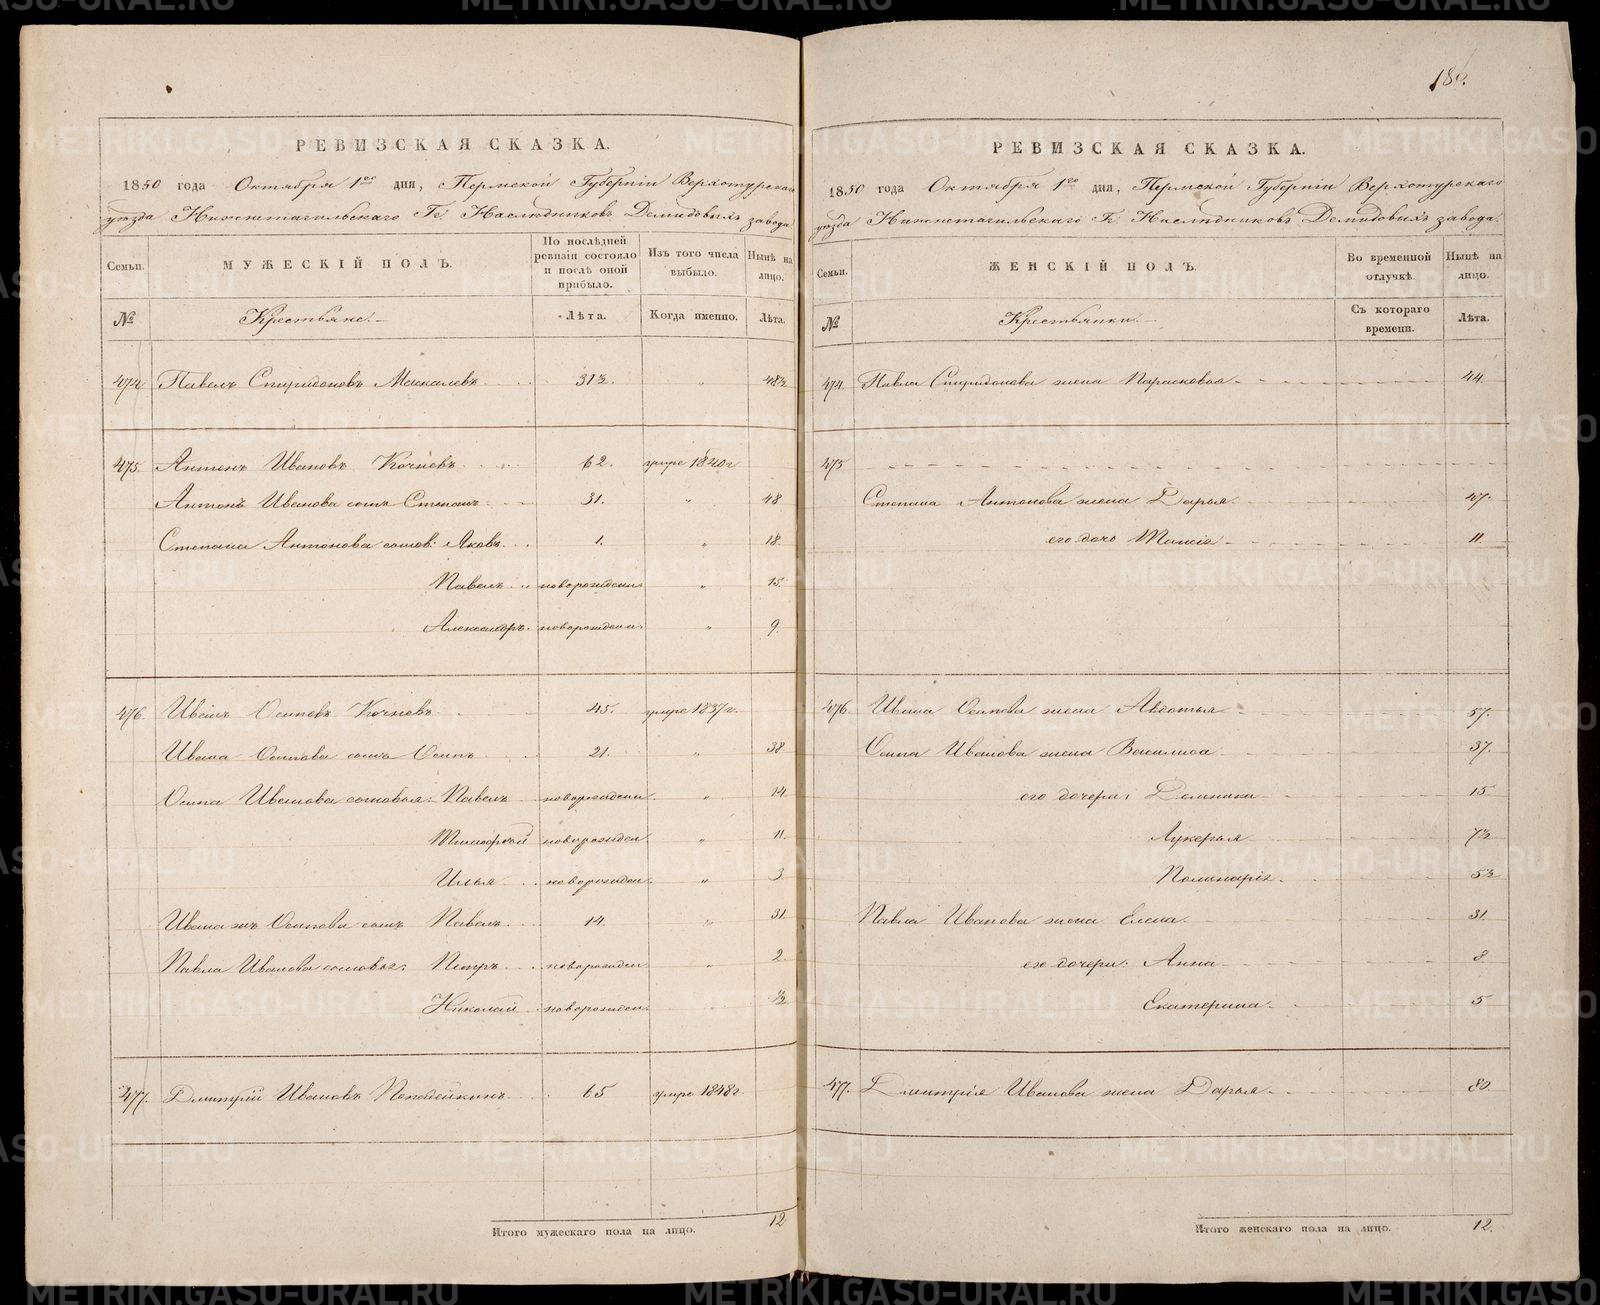 186.
РЕВИЗСКАЯ СКАЗКА.
1850 года Октября 1го дня, Пермской Губернiи Верхотурскаго
уезда Нижнетагильскаго Гг. Наслѣдниковъ Демидовыхъ завода
Семьи. МУЖЕСКІЙ ПОЛЪ. По послѣдней ревизіи состояло и послѣ оной прибыло. Изъ того числа выбыло. Нынѣ на лицо.
№ Крестьяне. Лѣта. Когда именно. Лѣта.
474 Павелъ Спиридоновъ Москалевъ 31½. " 48½
475. Антонъ Ивановъ Кочневъ 62. умре 1840г
Антона Иванова сынъ Степанъ 31. " 48
Степана Антонова сынов. Яковъ 1. " 18
Павелъ новорожден. " 15.
Александръ новорожден. " 9.
476. Иванъ Осиповъ Кочневъ 45. умре 1837г.
Ивана Осипова сынъ Осипъ 21. " 38
Осипа Иванова сыновья: Павелъ новорожден. " 14
Тимофей новорожден. " 11.
Илья новорожден. " 3
Ивана жъ Осипова сынъ Павелъ 14. " 31.
Павла Иванова сыновья: Петръ новорожден " 2.
Николай новорожден. ½
477. Дмитрій Ивановъ 65 умре 1848г.
Итого мужескаго пола на лицо. 12
РЕВИЗСКАЯ СКАЗКА.
1850 года Октября 1го дня, Пермской Губернiи Верхотурскаго
уезда Нижнетагильскаго Гг. Наслѣдниковъ Демидовыхъ завода.
Семьи. ЖЕНСКІЙ ПОЛЪ. Во временной отлучкѣ. Нынѣ на лицо.
№ Крестьянки. Съ котораго времени. Лѣта.
474. Павла Спиридонова жена Парасковья 44.
475
Степана Антонова жена Дарья. 47.
его дочь Таисія 11.
476. Ивана Осипова жена Авдотья 57.
Осипа Иванова жена Василиса 37.
его дочери: Домника 15
Лукерья 7½
Полинарія. 5½
Павла Иванова жена Елена. 31.
его дочери: Анна 8
Екатерина. 5
477. Дмитрія Иванова жена Дарья 80
Итого женскаго пола на лицо. 12.
METRIKI.GASO-URAL.RU